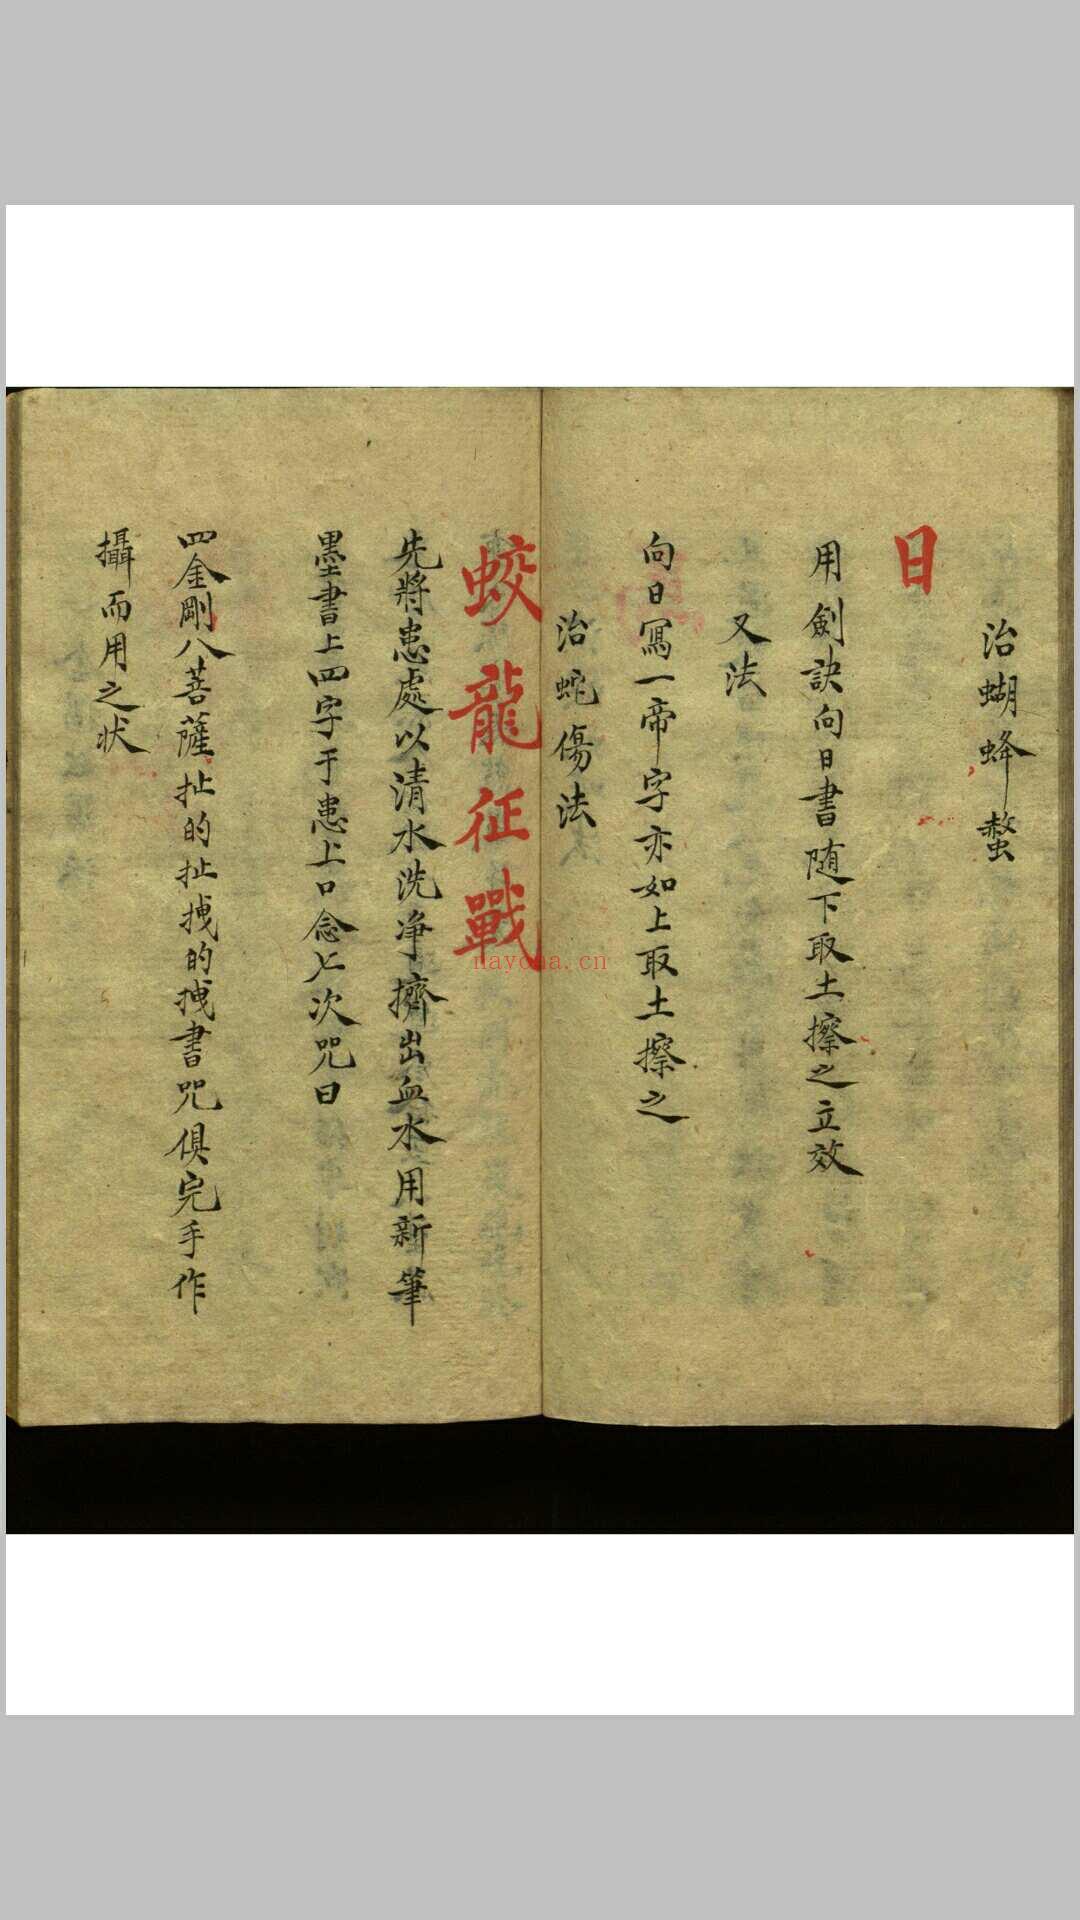 治蝴蜂螫
日
用劍訣向日書随下取土擦之立效
又法
向日冩一帝字亦如上取土擦之
治蛇傷法
蛟龍征戰
先將患處以清水洗净擠出血水用新筆
墨書上四字于患上口念七次咒曰
四金剛八菩薩扯的扯拽的拽書咒俱完手作
攝而用之状
nayona.cn